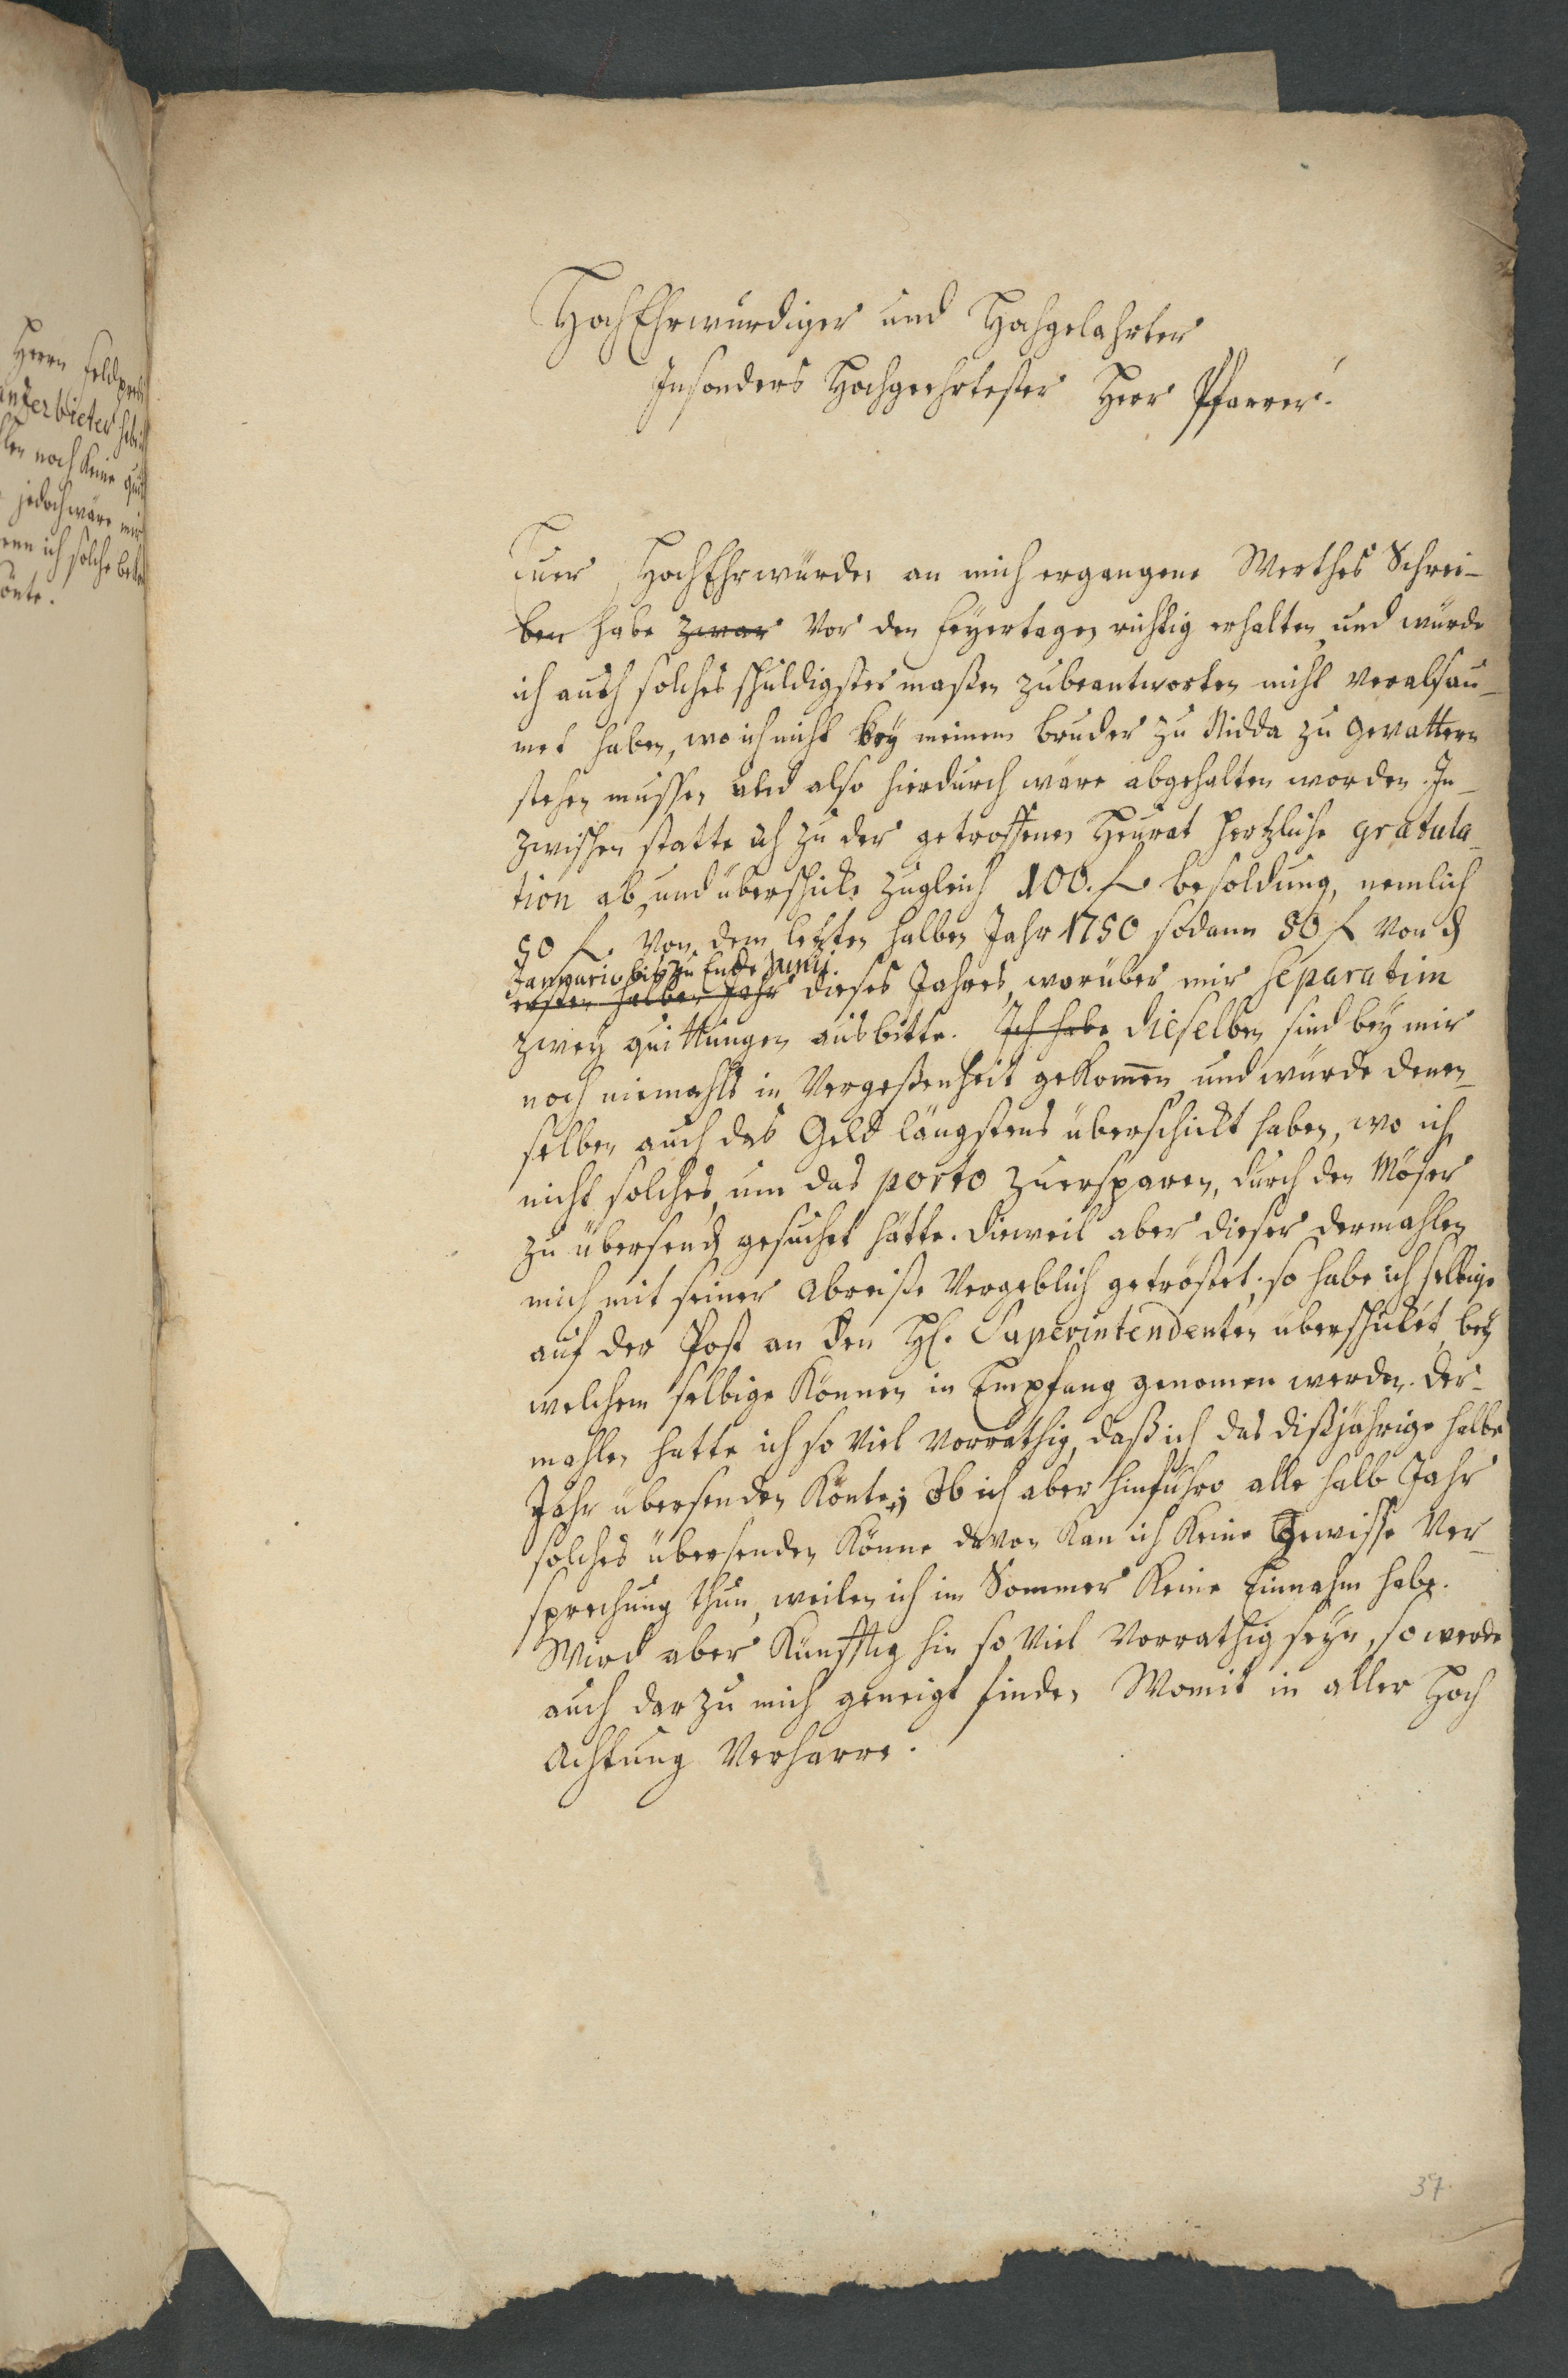 Herrn feldpred
anterbieter hab
len noch keine quit
jedoch wäre mir
wenn ich solche bek
önte.
HochEhrwürdiger und Hochgelahrter
Insonders Hochgeehrtester Herr Pfarrer.
Euer HochEhrwürden an mich ergangene Werthes Schrei-
ben habe zwar vor den feyertagen richtig erhalten, und würde
ich auch solches schuldigster maßen zubeantworten nicht verabsau-
met haben, wo ich nicht bey meinem bruder zu Nidda zu gevattern
stehen mussen und also hierdurch wäre abgehalten worden. In-
zwischen statte ich zu der getroffenen Heurat hertzliche gratula-
tion ab, und überschicke zugleich 100. f. besoldung, nemlich
50 f. von dem letzten halben Jahr 1750 sodann 50 f von d
Januario bis zu Ende Junij.
ersten halben Jahr dieses Jahres, worüber mir separatim
zwey quittungen ausbitte. Ich habe dieselben sind bey mir
noch niemahls in Vergeßenheit gekom̄en und würde denen-
selben auch das Geld längstens überschickt haben, wo ich
nicht solches, um das porto zuersparen, durch den Möser
zu übersend gesuchet hätte. dieweil aber dieser dermahlen
mich mit seiner abreiße vergeblich getröstet; so habe ich selbige
auf der Post an den H. Superintendenten überschicket, bey
welchem selbige können in Empfang genomen werden. der-
mahlen hatte ich so viel vorräthig, daß ich das dißjährige halbe
Jahr übersenden könte; Ob ich aber hinführo alle halb Jahr
solches übersenden könne davon kan ich keine gewisse Ver-
sprechung thun, weilen ich im Sommer keine Einnahm habe.
Wird aber künfftig hin so viel vorrathig seyn, so werde
auch dar zu mich geneigt finden Womit in aller Hoch
achtung verharre.
37.